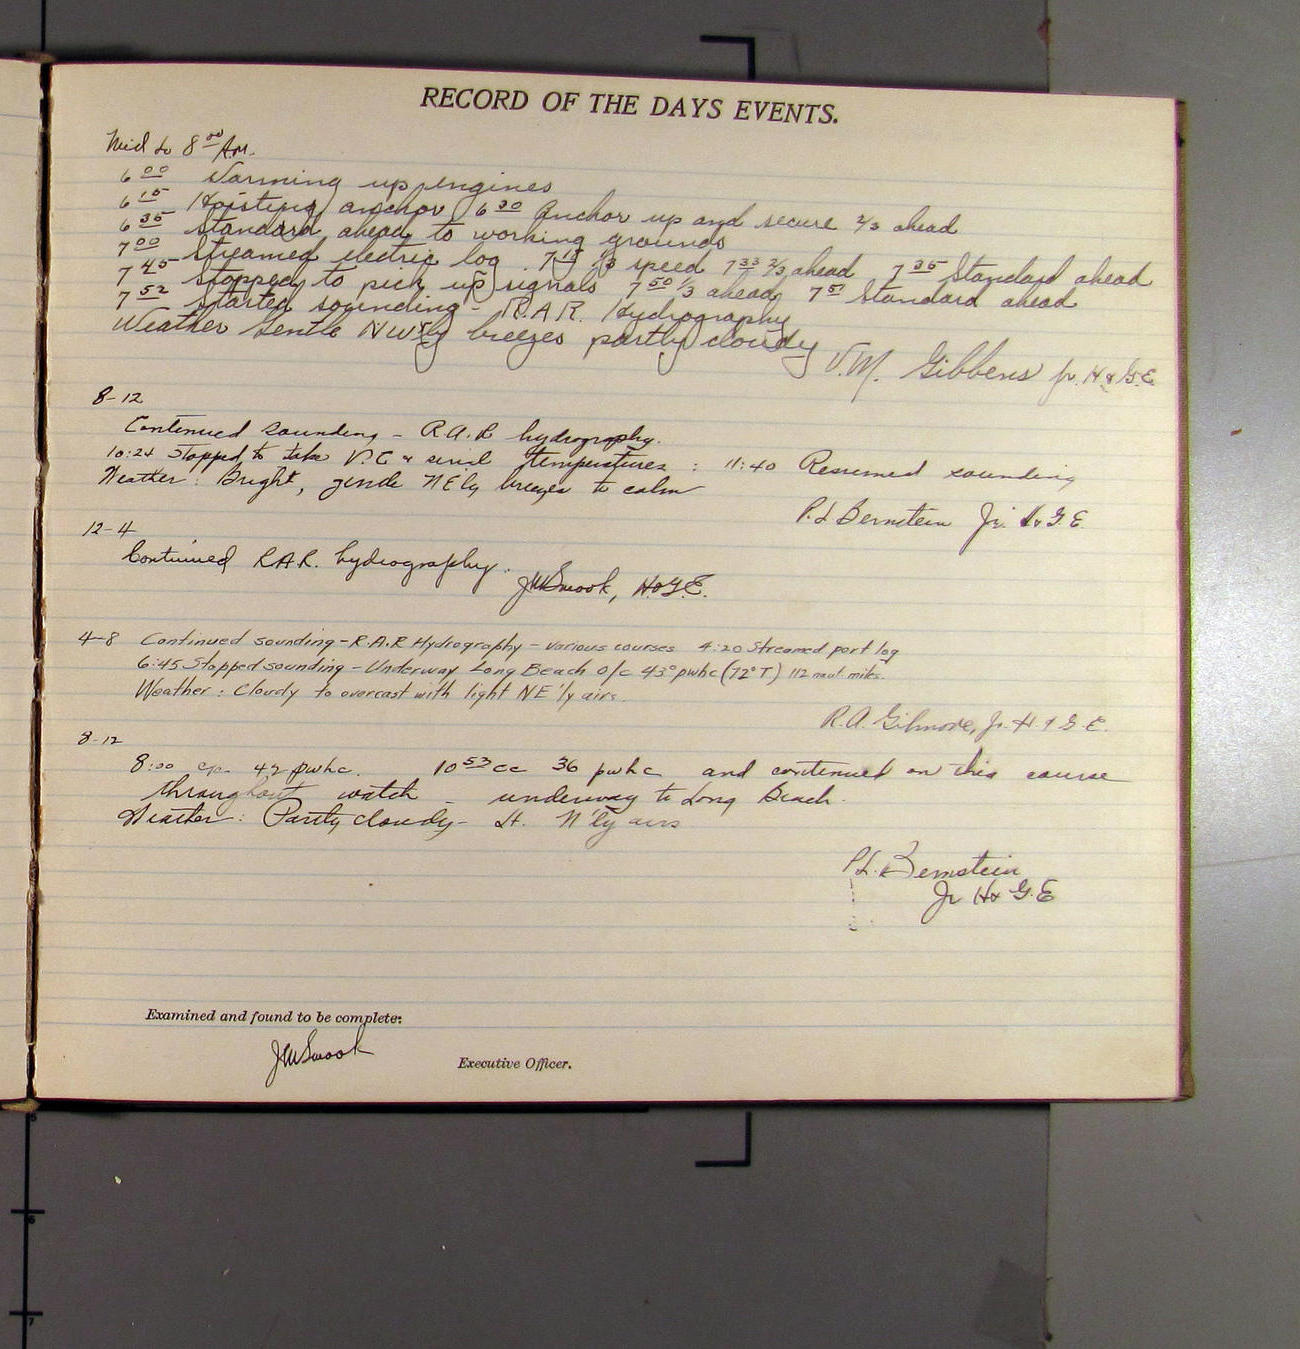 RECORD OF THE DAYS EVENTS.
Mid to 8 00 A.M.
6 00 Warming up engines
6 15 Hoisting anchor 6 30 Anchor up and secure 2/3 ahead
6 35 Standard ahead to working grounds
7 00 Streamed electric log. 7 15 1/3 speed 7 33 2/3 ahead 7 35 Standard ahead
7 45 Stopped to pick up signals 7 50 1/3 ahead 7 51 Standard ahead
7 52 Started sounding - R.A.R. Hydrography
Weather Gentle NW'ly breezes partly cloudy
V.M. Gibbens Jr. H & G.E.
8-12
Continued sounding - R.A.R hydrography.
10:24 Stopped to take V.C & serial temperatures : 11:40 Resumed sounding
Weather: Bright, gentle NE'ly breezes to calm
P.L Bernstein Jr. H & G.E.
12-4
Continued R.A.R. hydrography.
JW Smook, H & G.E.
4-8 Continued sounding - R.A.R Hydrography - various courses 4:20 Streamed port log
6:45 Stopped sounding - Underway Long Beach o/c 43° pwhc (72° T) 112 naut. miles.
Weather: Cloudy to overcast with light NE'ly airs.
R.A. Gilmore, Jr. H. & G.E.
8-12
8:00 42 pwhc. 10 53 cc 36 pwhc and continued on this course
throughout watch - underway to Long Beach.
Weather: Partly cloudy - Lt. N'ly airs
P.L. Bernstein
Jr H & G.E
Examined and found to be complete:
JW Smook
Executive Officer.
5
6
7